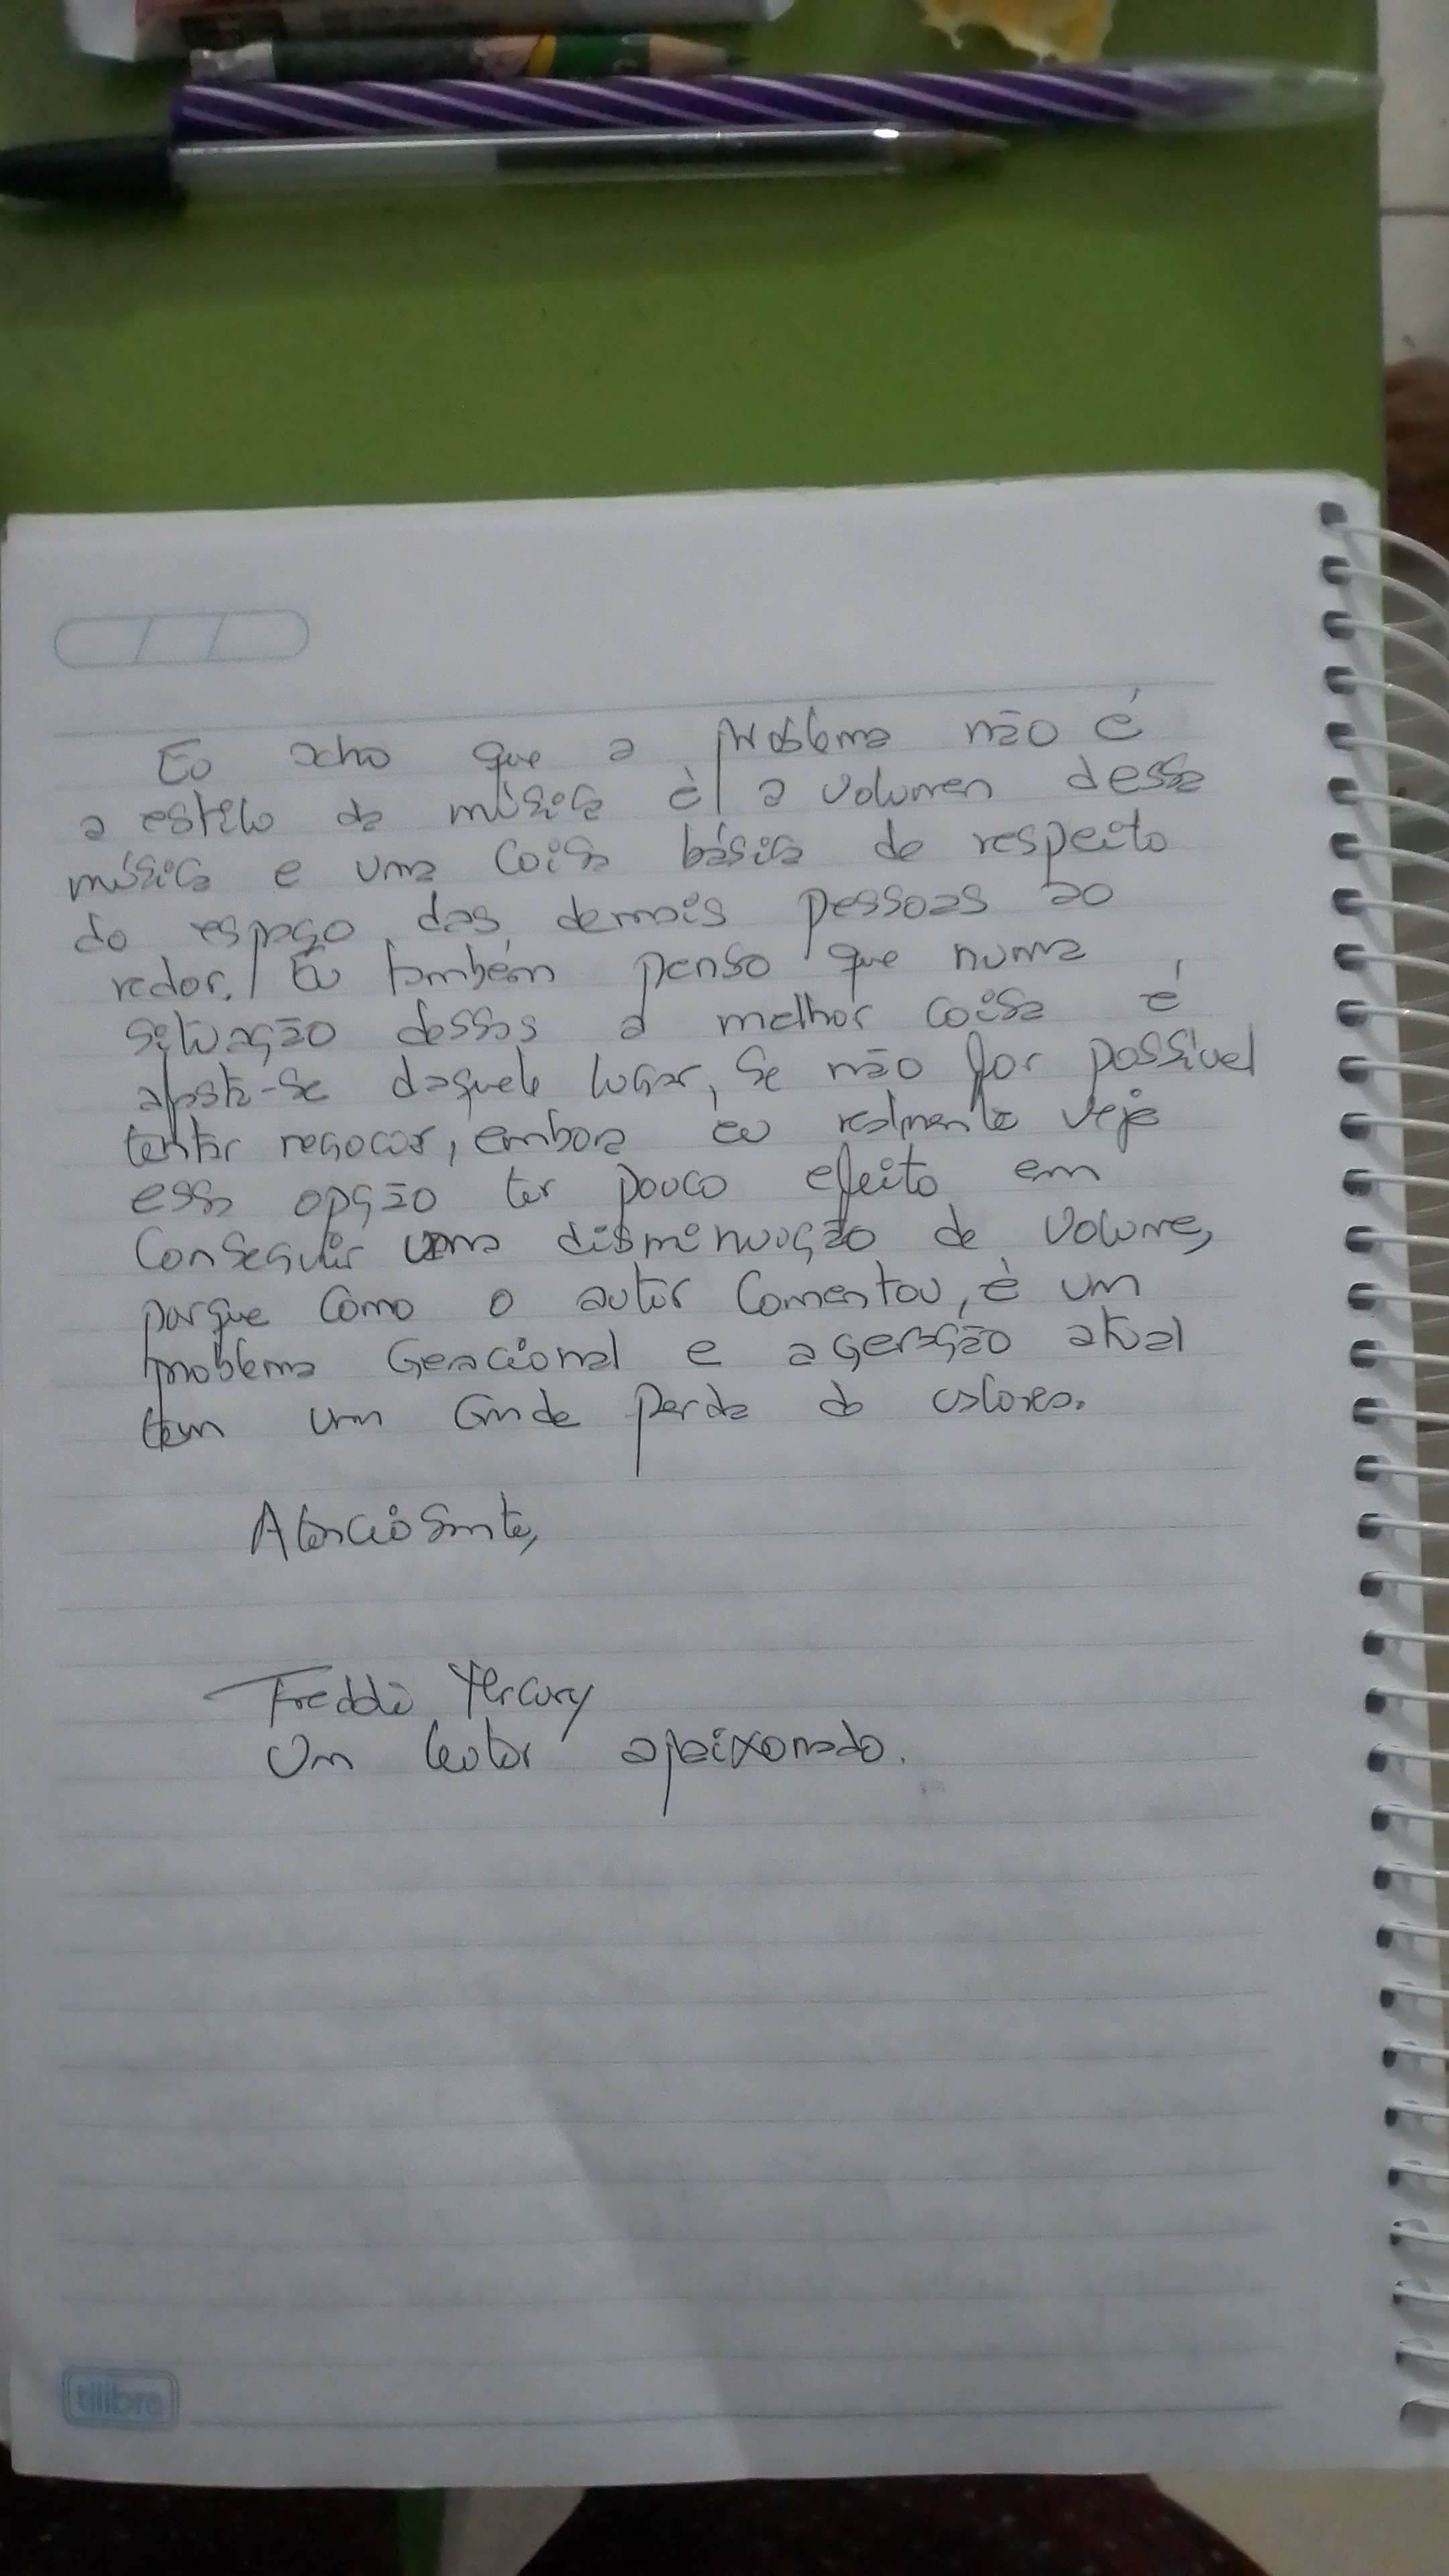 Eu acho que a problema não é
a estilo da música é a volumen dessa
música e uma coisa básica de respeito
do espaço das demais pessoas ao
redor. Eu também penso que numa
situação dessas a melhor coisa é
afasta-se daquele lugar, se não for possível
tentar negocar, embora eu realmente veja
essa opção ter pouco efeito em
conseguir uma disminuição de volume,
porque como o autor comentou, è um
problema Geracional e a geração atual
tem um Grande perda de valores.
Atenciosamente,
Freddi Mercury
Um leitor apaixonado.
tilibra